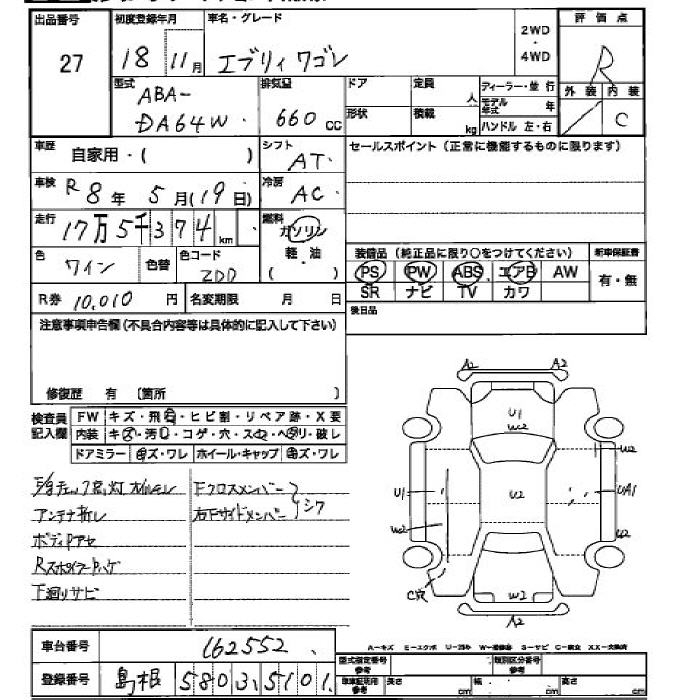 出品番号 27
初度登録年月 18 11月
車名・グレード エブリィ ワゴン
2WD・4WD
評価点 R
外装 内装 C
型式 ABA-
DA64W
排気量 660 cc
ドア 定員 人
形状 積載 kg
ディーラー・並行
モデル年式 年
ハンドル 左・右
車歴 自家用・( )
シフト AT
セールスポイント(正常に機能するものに限ります)
車検 R8年 5月(19日)
冷房 AC
走行 17万5千374km
燃料 ガソリン
軽・油
( )
色 ワイン 色替 色コード ZDD
装備品(純正品に限り○をつけてください) 新車保証書
PS PW ABS エアB AW 有・無
SR ナビ TV カワ
R券 10,010 円 名変期限 月 日
後日品
注意事項申告欄(不具合内容等は具体的に記入して下さい)
修復歴 有 〔箇所 〕
検査員記入欄
FW キズ・飛石・ヒビ割・リペア跡・X要
内装 キズ・汚レ・コゲ・穴・スレ・ヘタリ・破レ
ドアミラー キズ・ワレ ホイール・キャップ キズ・ワレ
アンテナ折レ
Fクロスメンバー
右Fサイドメンバー
シワ
下廻リサビ
A2 A2
U1
W2
W2
U1 U2 UA1
W2 W2
C穴 W2
A2
車台番号 162552
登録番号 島根 580 ろ 5101
A-キズ E-エクボ U-凹み W-補修跡 S-サビ C-腐食 XX-交換済
型式指定番号 参考 類別区分番号 参考
車庫証明用 参考 長さ cm 幅 cm 高さ cm